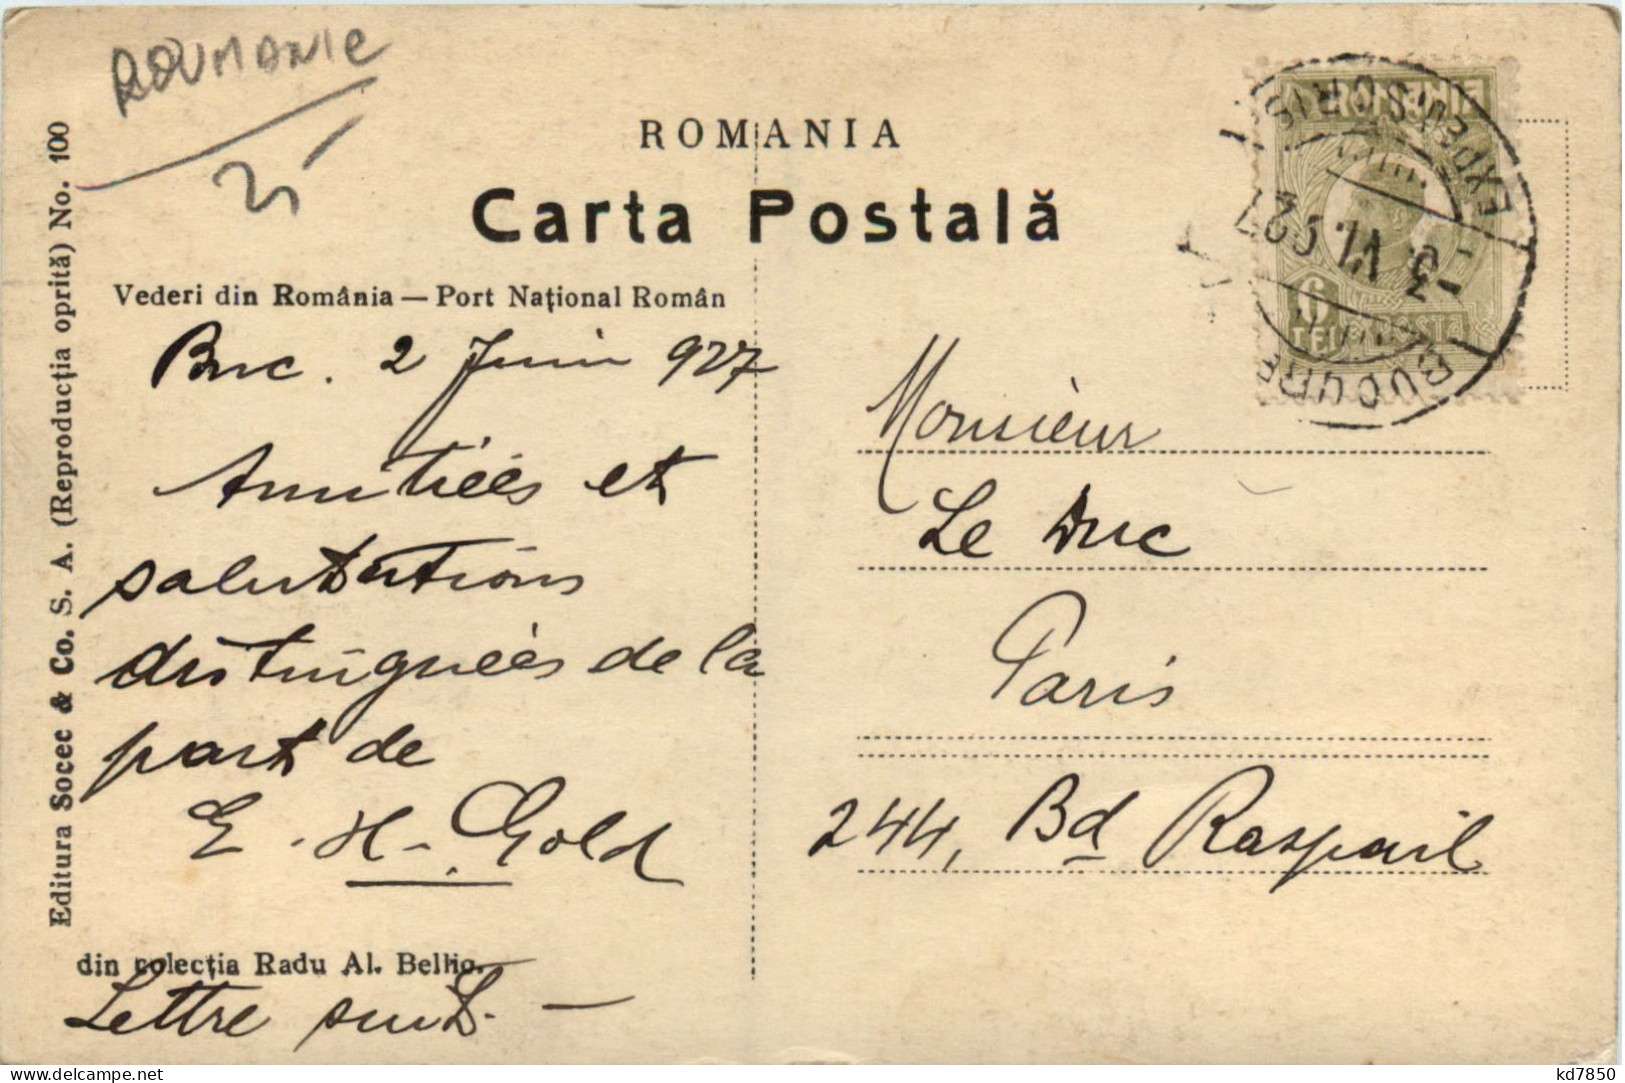 ROUMANIE
ROMANIA
Carta Postală
Vederi din România — Port Naţional Român
Buc. 2 Juin 927
Amitiées et
salutations
distinguées de la
part de
E. H. Gold
din colecţia Radu Al. Bellio.
Lettre suit. —
Editura Socec & Co. S. A. (Reproducţia oprită) No. 100
ROMANIA
6
LEI POSTA
EXPED
-3. VI. 927
BUCURE
Monsieur
Le Duc
Paris
244, Bd Raspail
www.delcampe.net
kd7850